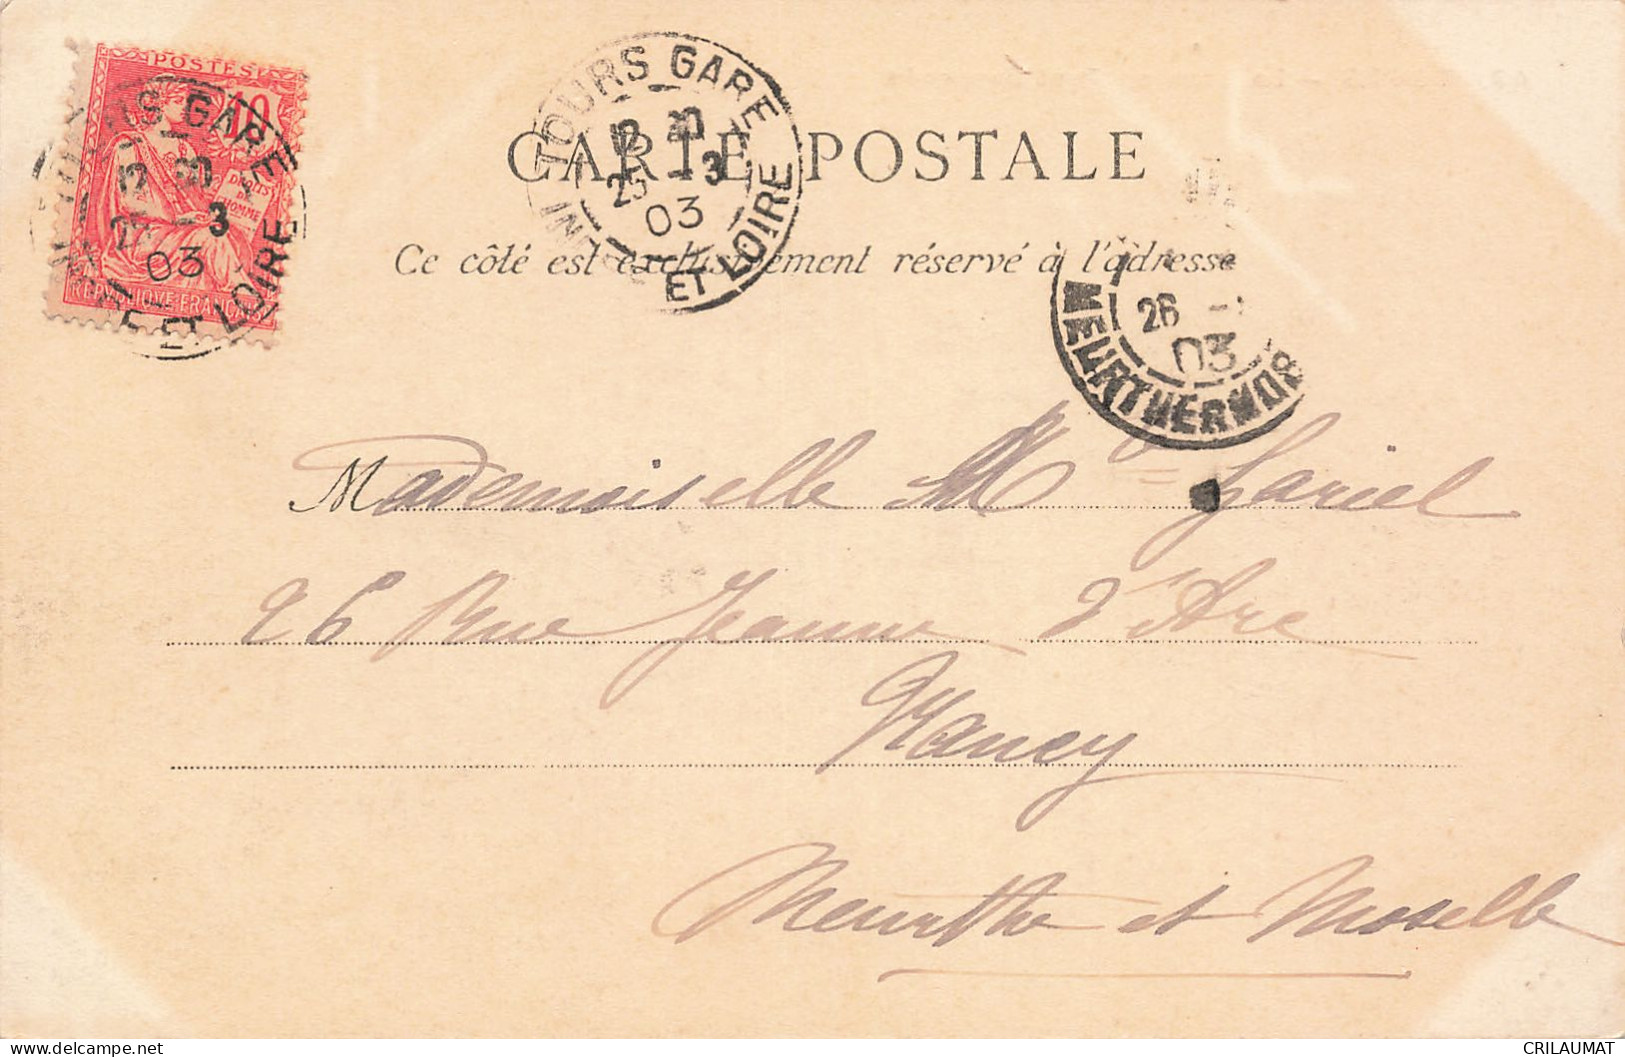 POSTES
10
DROITS
DE
L'HOMME
REPUBLIQUE FRANCAISE
TOURS GARE
25 -3
03
INDRE ET LOIRE
TOURS GARE
25 -3
03
INDRE ET LOIRE
CARTE POSTALE
Ce côté est exclusivement réservé à l'adresse
26
03
MEURTHE
Mademoiselle M Gariel
26 Rue Jeanne d'Arc
Nancy
Meurthe et Moselle
CRILAUMAT
delcampe.net